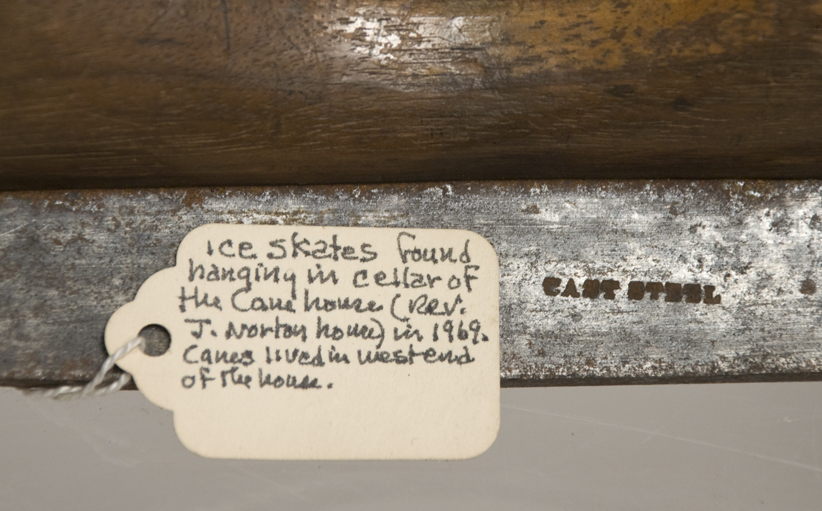 Ice skates found
hanging in cellar of
the Cane house (Rev.
J. Norton house) in 1969.
Canes lived in west end
of the house.
CAST STEEL